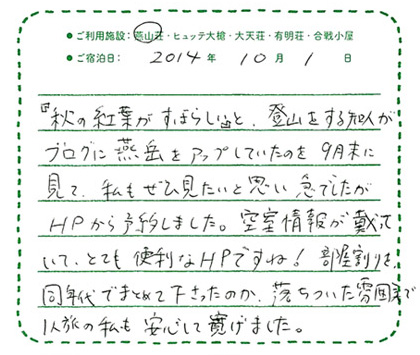 ●ご利用施設：燕山荘・ヒュッテ大槍・大天荘・有明荘・合戦小屋
●ご宿泊日： 2014 年 10 月 1 日
『秋の紅葉がすばらしい』と、登山をする知人が
ブログに燕岳をアップしていたのを9月末に
見て、私もぜひ見たいと思い急でしたが
HPから予約しました。空室情報が載って
いて、とても便利なHPですね！部屋割りも、
同年代でまとめて下さったのか、落ちついた雰囲気で
1人旅の私も安心して寛げました。